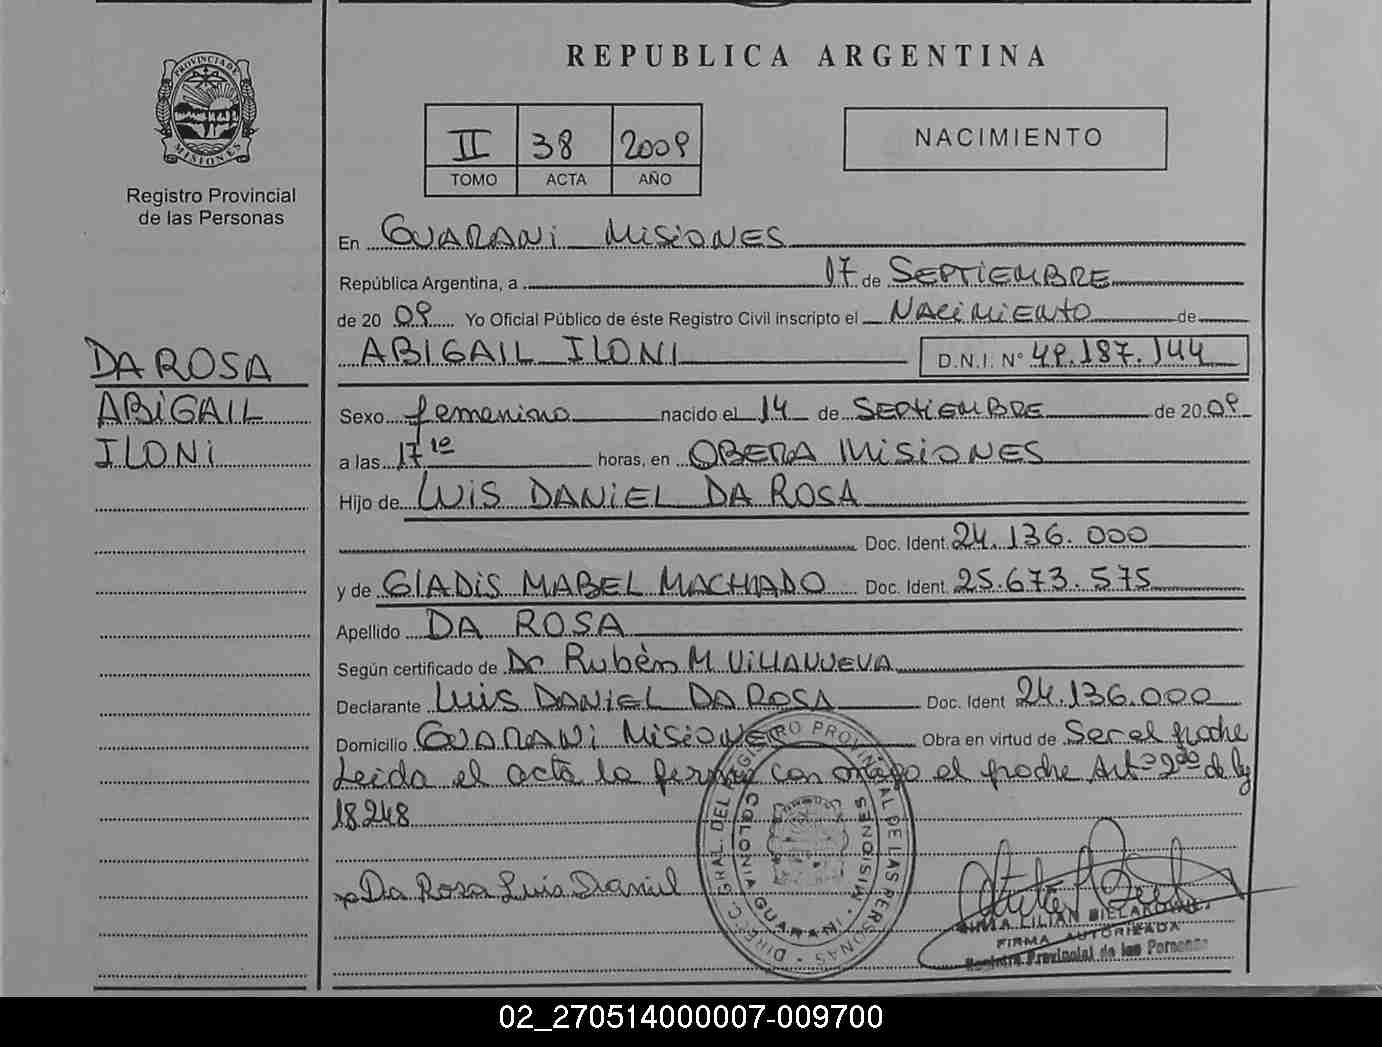 REPUBLICA ARGENTINA
PROVINCIA DE MISIONES
Registro Provincial
de las Personas
II 38 2009
TOMO ACTA AÑO
NACIMIENTO
DA ROSA
ABIGAIL
ILONI
En GUARANI MISIONES
República Argentina, a 17 de SEPTIEMBRE
de 20 09 Yo Oficial Público de éste Registro Civil inscripto el NACIMIENTO de
ABIGAIL ILONI D.N.I. N° 49.187.144
Sexo femenino nacido el 14 de SEPTIEMBRE de 20 09
a las 17 10 horas, en OBERA MISIONES
Hijo de LUIS DANIEL DA ROSA
Doc. Ident. 24.136.000
y de GLADIS MABEL MACHADO Doc. Ident. 25.673.575
Apellido DA ROSA
Según certificado de Dr Rubén M VILLANUEVA
Declarante LUIS DANIEL DA ROSA Doc. Ident 24.136.000
Domicilio GUARANI MISIONES Obra en virtud de Ser el padre
Leida el acta la firma con migo el padre Artº 2do de ley
18.248
Da Rosa Luis Daniel
DIRECC. GRAL. DEL REGISTRO PROVINCIAL DE LAS PERSONAS
COLONIA GUARANI - MISIONES
LILIAN
FIRMA AUTORIZADA
Registro Provincial de las Personas
02_270514000007-009700